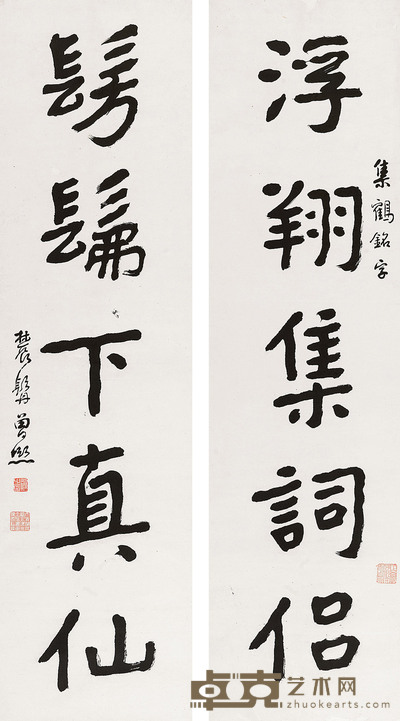 集鶴銘字
浮翔集詞侶
髣髴下真仙
農髯曾熙
卓克艺术网
zhuokearts.com